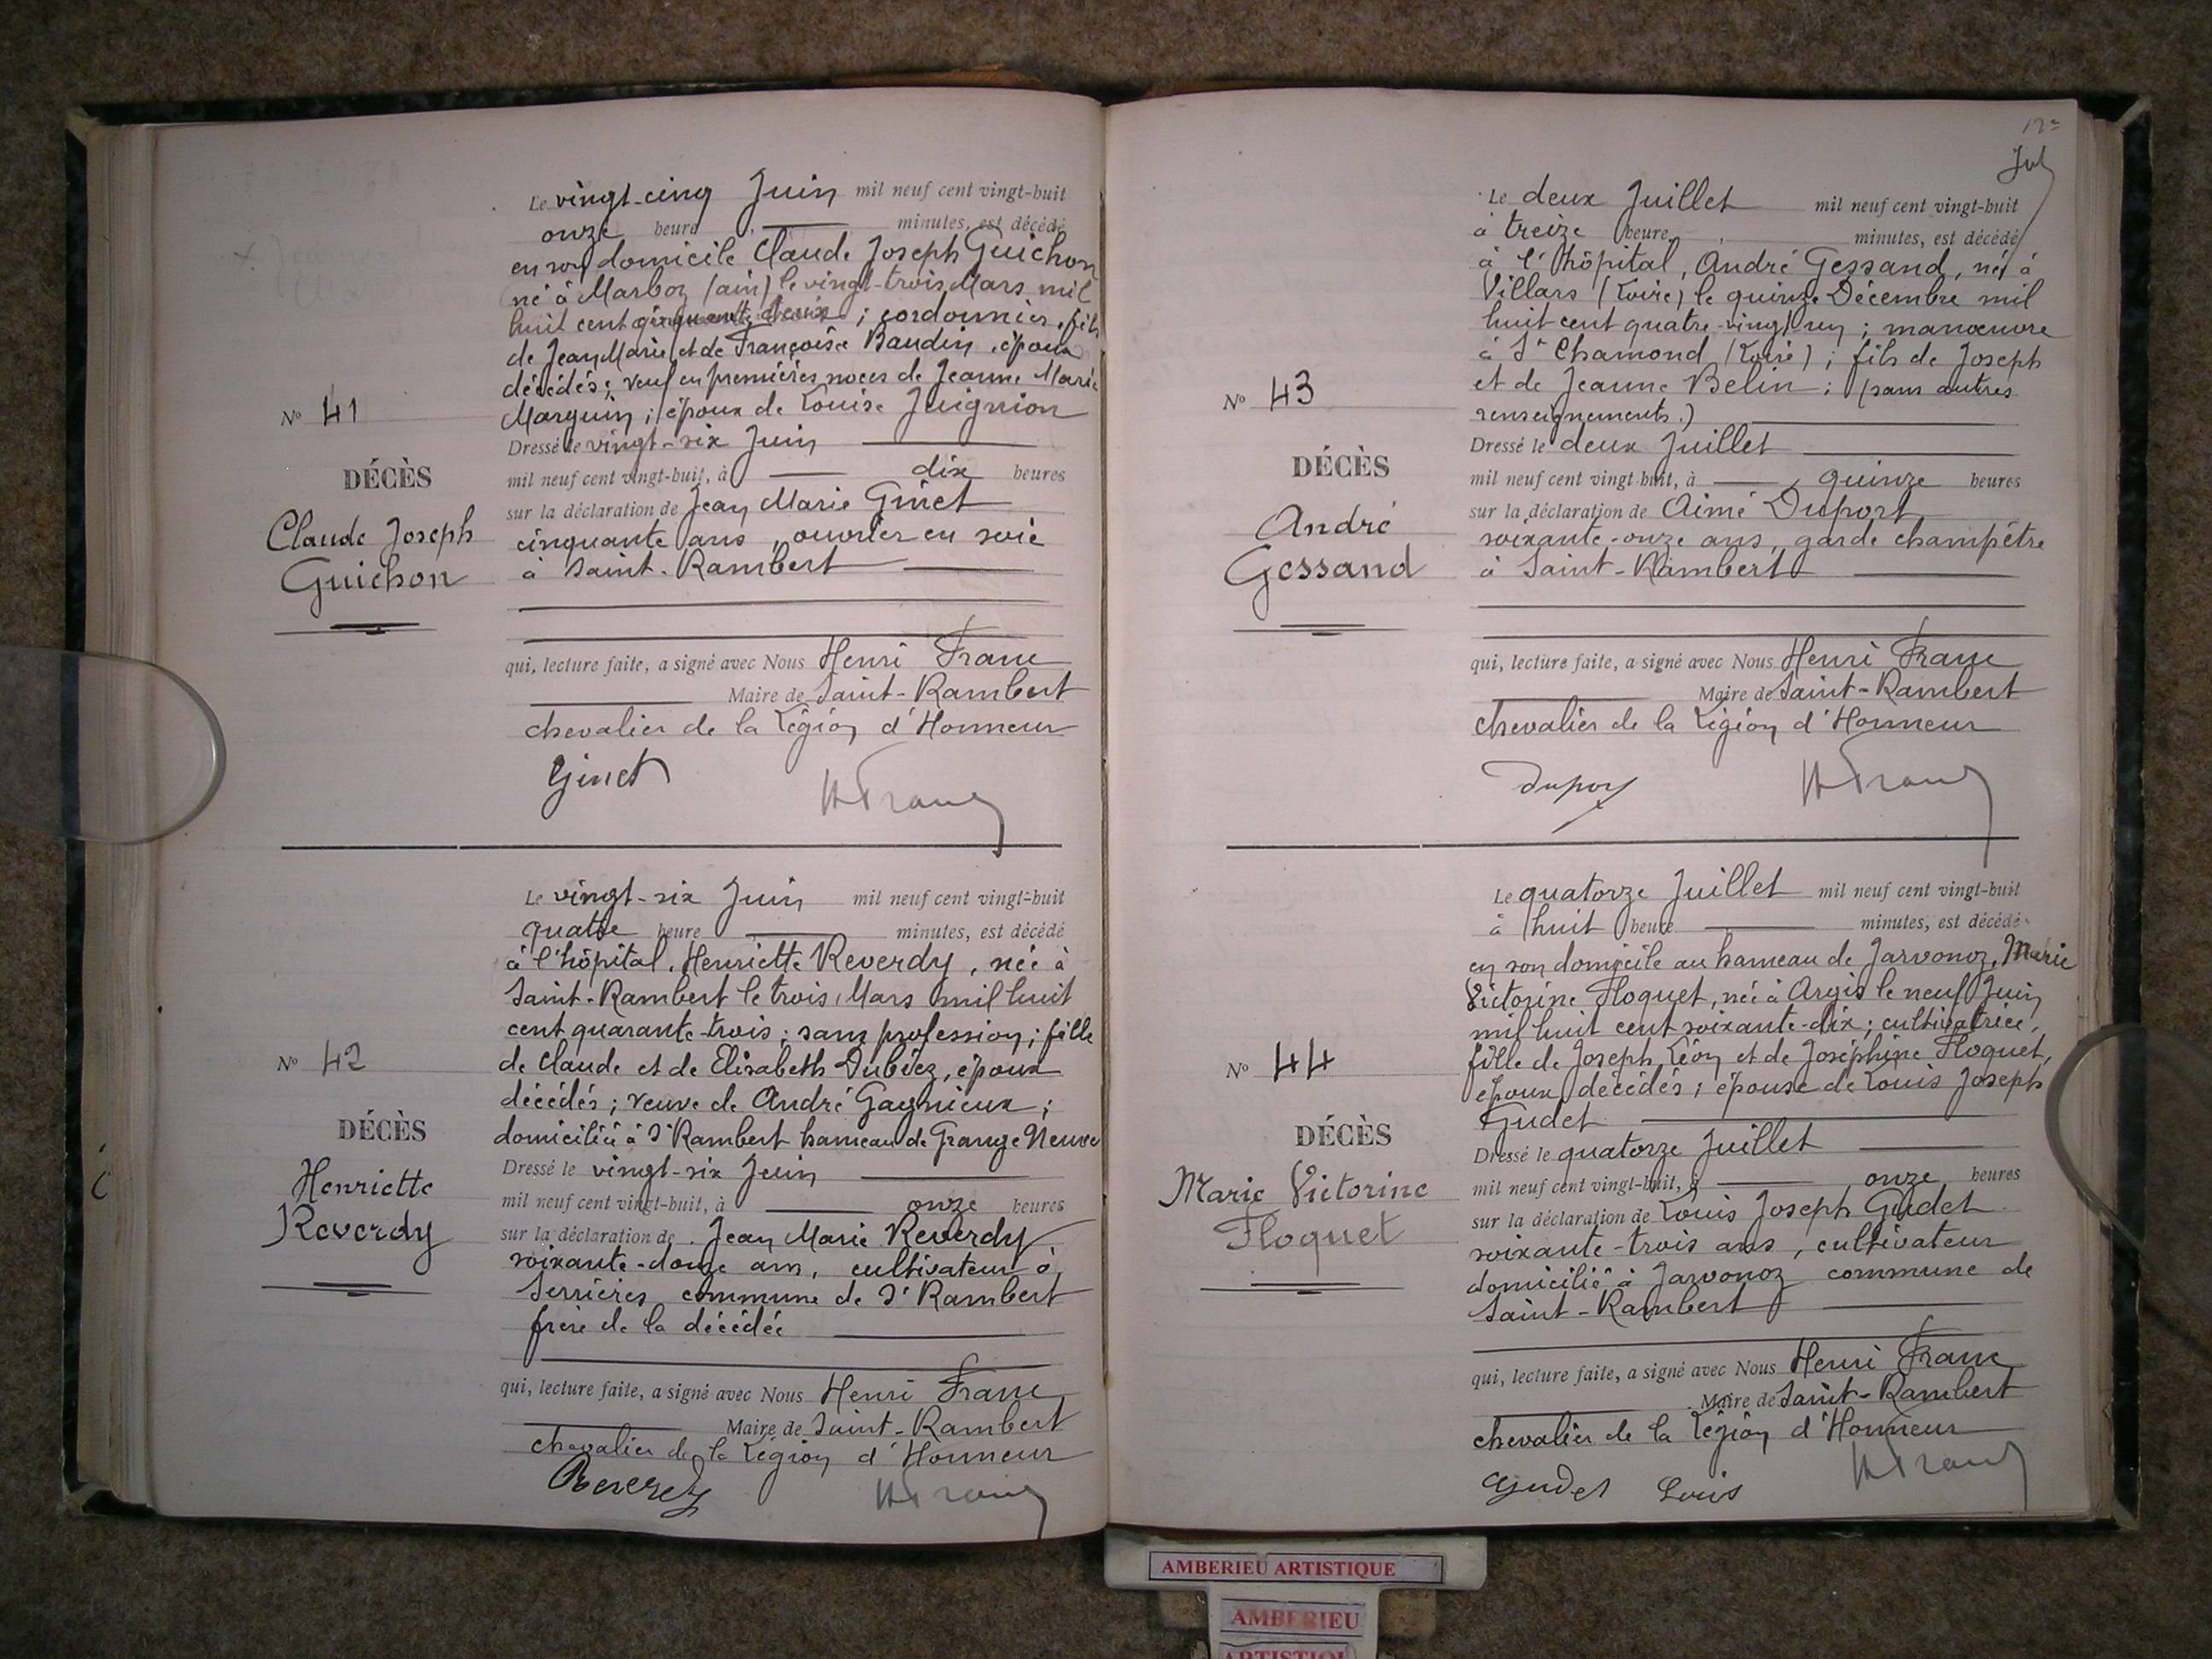 Le vingt-cinq Juin mil neuf cent vingt-huit
onze heure minutes, est décédé
en son domicile Claude Joseph Guichon
né à Marboz (ain) le vingt-trois Mars mil
huit cent cinquante deux ; cordonnier, fils
de Jean Marie et de Françoise Baudin, époux
décédés ; veuf en premières noces de Jeanne Marie
Marguin ; époux de Louise Juignion
Nº 41
Dressé le vingt-six Juin
DÉCÈS
mil neuf cent vingt-huit, à dix heures
Claude Joseph
Guichon
sur la déclaration de Jean Marie Ginet
cinquante ans, ouvrier en soie
à Saint-Rambert
qui, lecture faite, a signé avec Nous Henri Franc
Maire de Saint-Rambert
chevalier de la Légion d'Honneur
Ginet HFranc
Le vingt-six Juin mil neuf cent vingt-huit
quatre heure minutes, est décédé
à l'hôpital, Henriette Reverdy, née à
Saint-Rambert le trois Mars mil huit
cent quarante-trois ; sans profession ; fille
de Claude et de Elisabeth Dubiez, époux
décédés ; veuve de André Gagnieux ;
domiciliée à St Rambert hameau de Grange Neuve
Nº 42
DÉCÈS
Henriette
Reverdy
Dressé le vingt-six Juin
mil neuf cent vingt-huit, à onze heures
sur la déclaration de Jean Marie Reverdy
soixante-douze ans, cultivateur à
Serrières commune de St Rambert
frère de la décédée
qui, lecture faite, a signé avec Nous Henri Franc
Maire de Saint-Rambert
chevalier de la Légion d'Honneur
Reverdy HFranc
Le deux Juillet mil neuf cent vingt-huit
à treize heure minutes, est décédé
à l'hôpital, André Gessand, né à
Villars (Loire) le quinze Décembre mil
huit cent quatre-vingt un ; manœuvre
à St Chamond (Loire) ; fils de Joseph
et de Jeanne Belin ; (sans autres
renseignements.)
Nº 43
DÉCÈS
André
Gessand
Dressé le deux Juillet
mil neuf cent vingt-huit, à quinze heures
sur la déclaration de Aimé Duport
soixante-onze ans, garde champêtre
à Saint-Rambert
qui, lecture faite, a signé avec Nous Henri Franc
Maire de Saint-Rambert
chevalier de la Légion d'Honneur
Duport HFranc
Le quatorze Juillet mil neuf cent vingt-huit
à huit heure minutes, est décédé
en son domicile au hameau de Jarvonoz, Marie
Victorine Floquet, née à Argis le neuf Juin
mil huit cent soixante-dix ; cultivatrice,
fille de Joseph Léon et de Joséphine Floquet,
époux décédés ; épouse de Louis Joseph
Gudet
Nº 44
DÉCÈS
Marie Victorine
Floquet
Dressé le quatorze Juillet
mil neuf cent vingt-huit, à onze heures
sur la déclaration de Louis Joseph Gudet
soixante-trois ans, cultivateur
domicilié à Jarvonoz commune de
Saint-Rambert
qui, lecture faite, a signé avec Nous Henri Franc
Maire de Saint-Rambert
chevalier de la Légion d'Honneur
Gudet Louis HFranc
AMBERIEU ARTISTIQUE
AMBERIEU